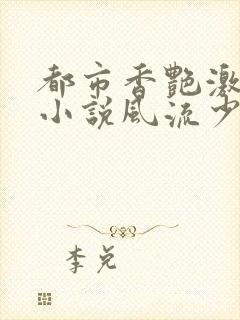 都市香艷激
小說風流少
李兌